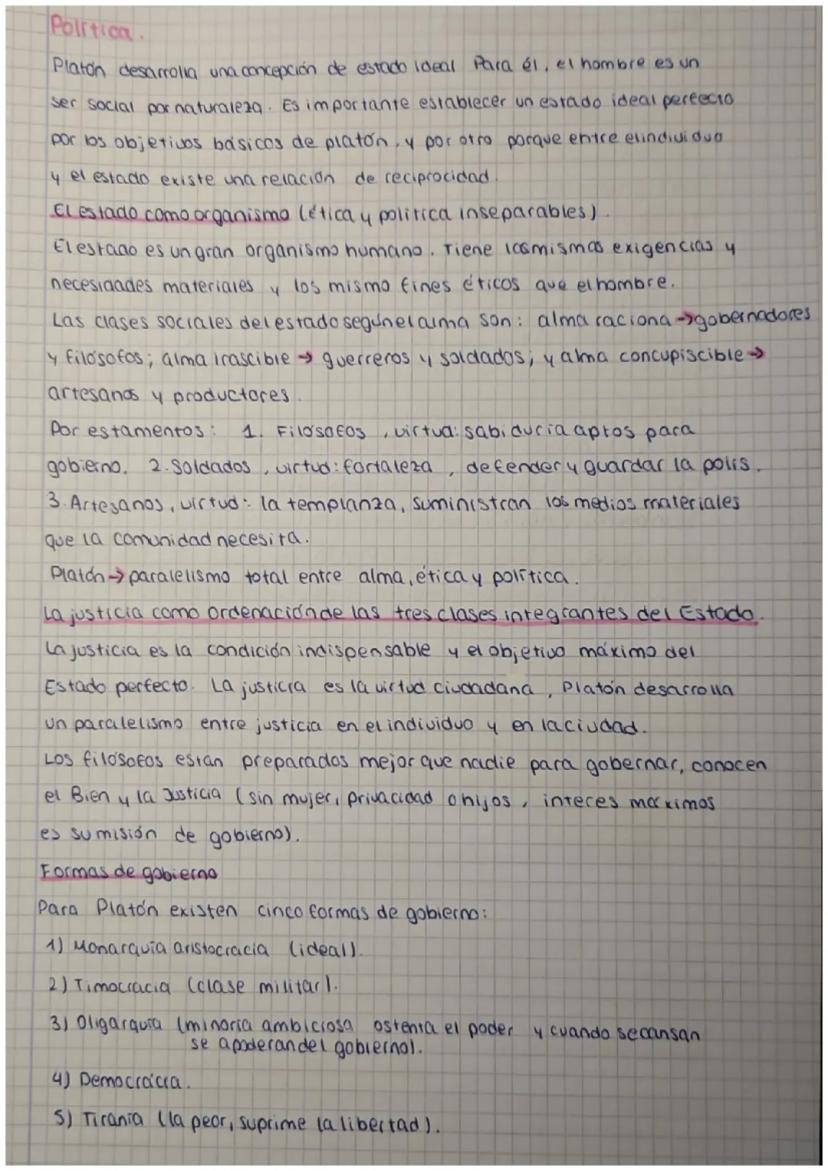 Política.
Platón desarrolla una concepción de estado ideal Para él, el hombre es un
ser social por naturaleza. Es importante establecer un estado ideal perfecto
por los objetivos básicos de platón, y por otro porque entre el individuo
y el estado existe una relación de reciprocidad.
El estado como organismo (ética y política inseparables).
El estado es un gran organismo humano. Tiene las mismas exigencias y
necesidades materiales y los mismo fines éticos que el hombre.
Las clases sociales del estado según el alma son: alma raciona → gobernadores
y filósofos; alma irascible → guerreros y soldados, y alma concupiscible →
artesanos y productores.
Por estamentos: 1. Filósofos, virtua: sabiduría aptos para
gobierno. 2. Soldados, virtud: fortaleza, defender y guardar la polis.
3. Artesanos, virtud: la templanza, suministran los medios materiales
que la comunidad necesita.
Platón → paralelismo total entre alma, ética y política.
La justicia como ordenación de las tres clases integrantes del Estado.
La justicia es la condición indispensable y el objetivo máximo del
Estado perfecto. La justicia es la virtud ciudadana, Platón desarrolla
un paralelismo entre justicia en el individuo y en la ciudad.
Los filósofos están preparados mejor que nadie para gobernar, conocen
el Bien y la Justicia (sin mujer, privacidad o hijos, interes máximos
es su misión de gobierno).
Formas de gobierno
Para Platón existen cinco formas de gobierno:
1) Monarquía aristocracia (ideal).
2) Timocracia (clase militar).
3) Oligarquía (minoría ambiciosa ostenta el poder y cuando se cansan
se apoderan del gobierno).
4) Democracia.
5) Tiranía (la peor, suprime la libertad).